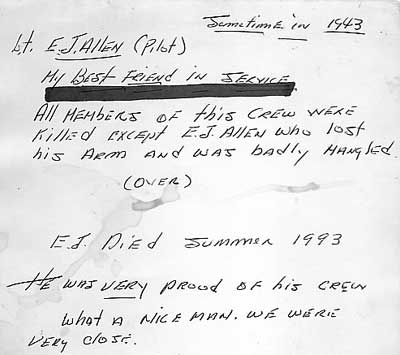 Sometime in 1943
Lt. E.J. Allen (Pilot)
My Best Friend in Service
All Members of this crew were
Killed except E.J. Allen who lost
his Arm and was badly Mangled.
(over)
E.J. Died Summer 1993
He was very proud of his crew
what a nice man. we were
very close.